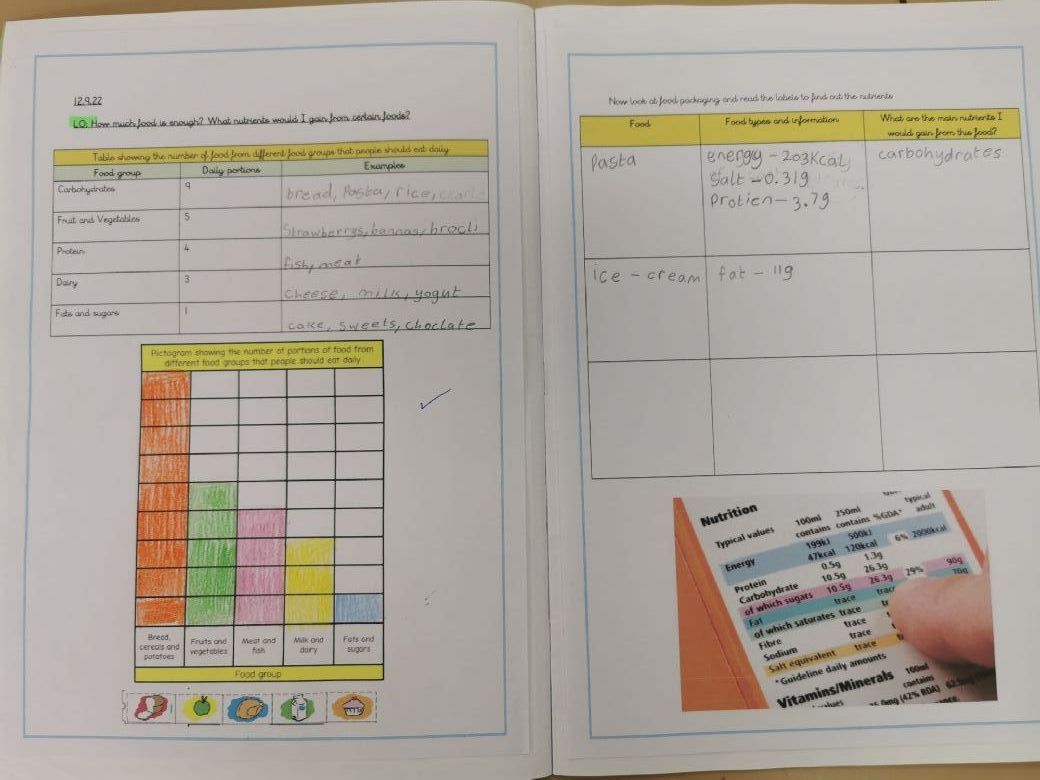 12.9.22
LO: How much food is enough? What nutrients would I gain from certain foods?
Table showing the number of food from different food groups that people should eat daily
Food group Daily portions Examples
Carbohydrates 9 bread, Pasta, rice,
Fruit and Vegetables 5 Strawberrys, bannas, brocli
Protein 4 fish, meat
Dairy 3 cheese, milk, yogut
Fats and sugars 1 cake, sweets, choclate
Pictogram showing the number of portions of food from
different food groups that people should eat daily
Bread, cereals and potatoes
Fruits and vegetables
Meat and fish
Milk and dairy
Fats and sugars
Food group
Now look at food packaging and read the labels to find out the nutrients
Food Food types and information What are the main nutrients I would gain from this food?
Pasta energy - 203Kcal carbohydrates
Salt - 0.31g
Protien - 3.7g
ice - cream fat - 11g
Nutrition
Typical values 100ml contains 250ml contains %GDA* typical adult
Energy 199kJ 500kJ
47kcal 120kcal 6% 2000kcal
Protein 0.5g 1.3g
Carbohydrate 10.5g 26.3g
of which sugars 10.5g 26.3g 29% 90g
Fat trace 70g
of which saturates trace
Fibre trace
Sodium trace
Salt equivalent trace
*Guideline daily amounts
Vitamins/Minerals 100ml
contains
(42% RDA)